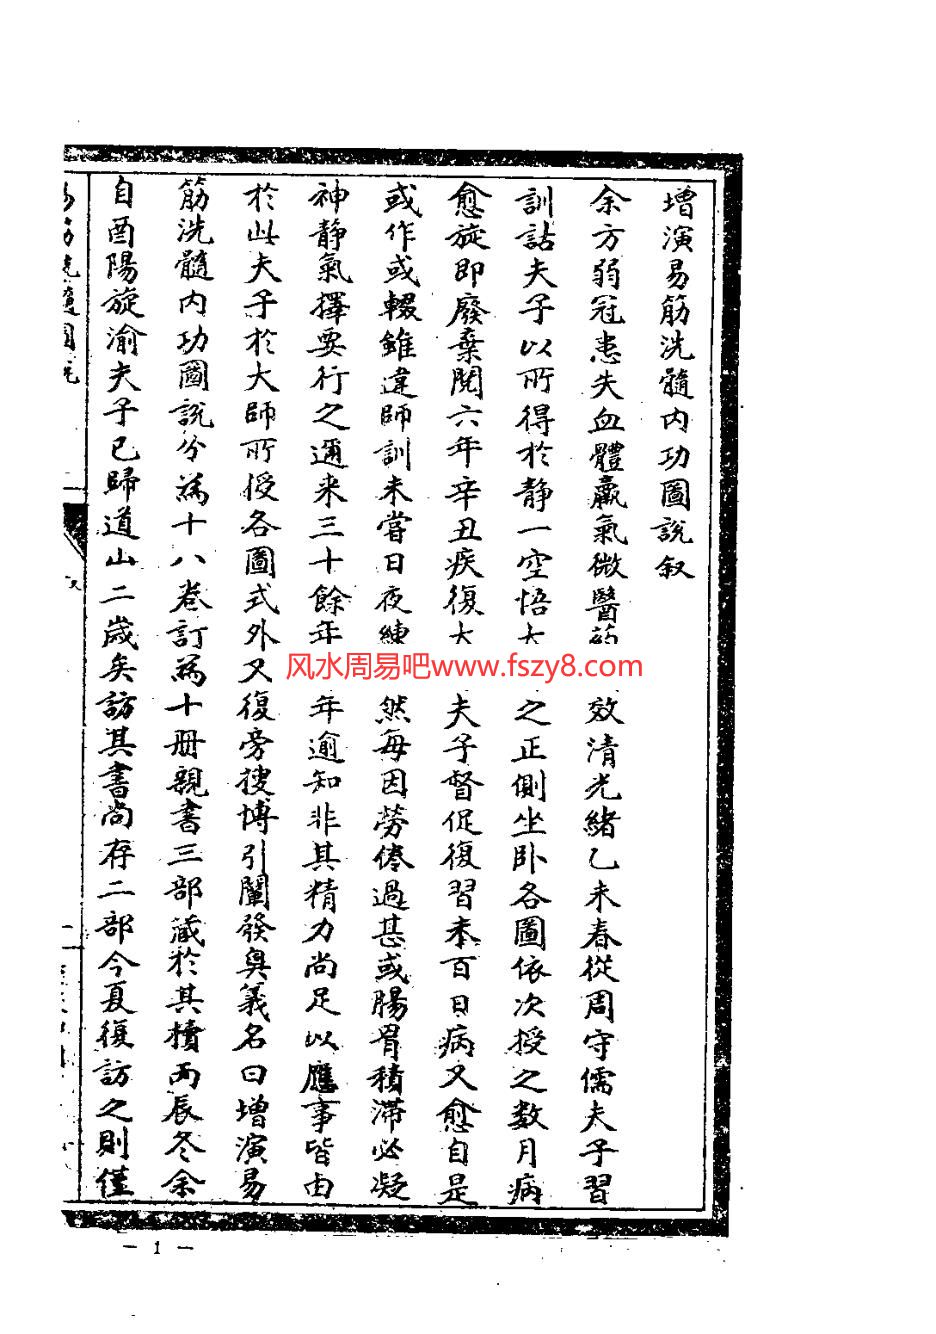 增演易筋洗髓內功圖說叙
余方弱冠患失血體羸氣微醫药 效清光緒乙未春從周守儒夫子習
訓詁夫子以所得於靜一空悟大 之正側坐卧各圖依次授之数月病
愈旋即廢棄閱六年辛丑疾復大 夫子督促復習未百日病又愈自是
或作或輟雖違師訓未嘗日夜練 然每因勞倦過甚或腸胃積滯必凝
神靜氣擇要行之邇来三十餘年 年逾知非其精力尚足以應事皆由
於此夫子於大師所授各圖式外又復旁搜博引闡發奥義名曰增演易
筋洗髓內功圖說分為十八卷訂為十册親書三部藏於其櫝丙辰冬余
自酉陽旋渝夫子已歸道山二歲矣訪其書尚存二部今夏復訪之則僅
风水周易吧www.fszy8.com
— 1 —